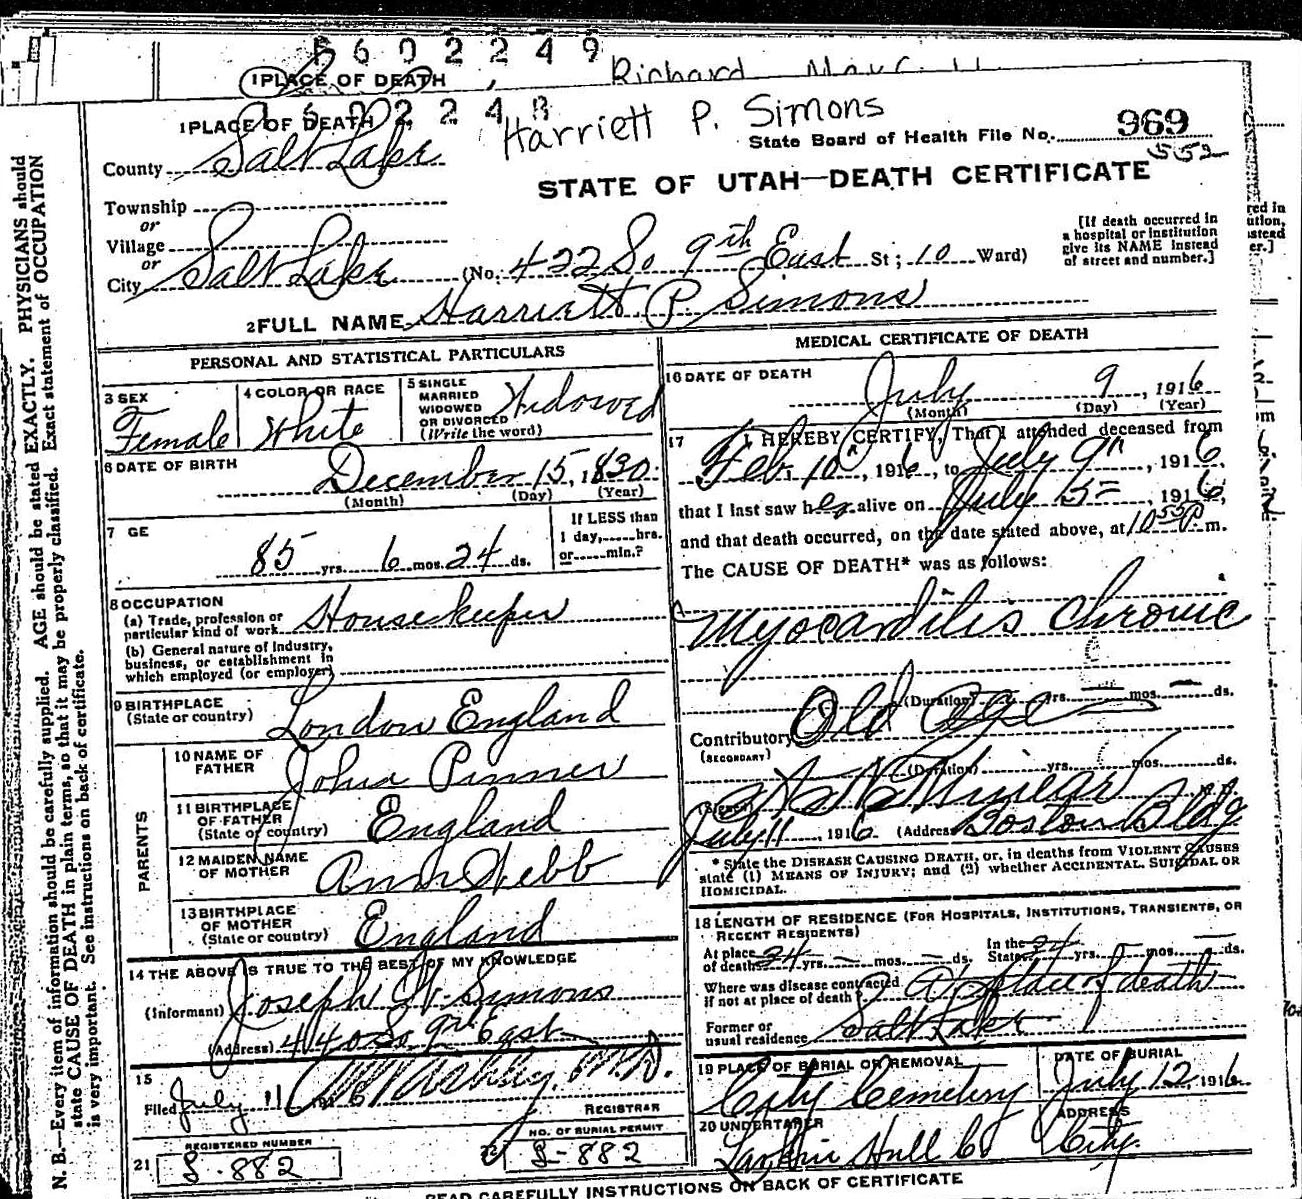 R602249
1 PLACE OF DEATH
Richard
1 PLACE OF DEATH
Harriett P. Simons
State Board of Health File No. 969
552
County Salt Lake
STATE OF UTAH—DEATH CERTIFICATE
Township
or
Village
or
City Salt Lake (No. 422 So 9th East St; 10 Ward)
[If death occurred in
a hospital or institution
give its NAME instead
of street and number.]
2 FULL NAME Harriett P. Simons
PERSONAL AND STATISTICAL PARTICULARS
3 SEX
Female
4 COLOR OR RACE
White
5 SINGLE
MARRIED
WIDOWED
OR DIVORCED
(Write the word)
Widowed
6 DATE OF BIRTH
December 15, 1830
(Month) (Day) (Year)
7 GE
85 yrs. 6 mos. 24 ds.
If LESS than
1 day, hrs.
or min.?
8 OCCUPATION
(a) Trade, profession or
particular kind of work Housekeeper
(b) General nature of industry,
business, or establishment in
which employed (or employer)
9 BIRTHPLACE
(State or country) London England
PARENTS
10 NAME OF
FATHER John Pinner
11 BIRTHPLACE
OF FATHER
(State or country) England
12 MAIDEN NAME
OF MOTHER Ann Webb
13 BIRTHPLACE
OF MOTHER
(State or country) England
14 THE ABOVE IS TRUE TO THE BEST OF MY KNOWLEDGE
(Informant) Joseph W. Simons
(Address) 440 So 9th East
15
Filed July 11 1916 M.D.
REGISTRAR
REGISTERED NUMBER
21 S-882
NO. OF BURIAL PERMIT
S-882
MEDICAL CERTIFICATE OF DEATH
16 DATE OF DEATH
July 9, 1916
(Month) (Day) (Year)
17 I HEREBY CERTIFY, That I attended deceased from
Feb. 10", 1916, to July 9", 1916,
that I last saw her alive on July 5=, 1916,
and that death occurred, on the date stated above, at 10 55 P. m.
The CAUSE OF DEATH* was as follows:
Myocarditis Chronic
(Duration) yrs. mos. ds.
Contributory Old Age
(SECONDARY)
(Duration) yrs. mos. ds.
(Signed) M.D.
July 11, 1916 (Address) Boston Bldg.
* State the DISEASE CAUSING DEATH, or, in deaths from VIOLENT CAUSES
state (1) MEANS OF INJURY; and (2) whether ACCIDENTAL, SUICIDAL OR
HOMICIDAL.
18 LENGTH OF RESIDENCE (FOR HOSPITALS, INSTITUTIONS, TRANSIENTS, OR
RECENT RESIDENTS)
At place
of death 34 yrs. mos. ds.
In the
State 34 yrs. mos. ds.
Where was disease contracted
if not at place of death? At place of death
Former or
usual residence Salt Lake
19 PLACE OF BURIAL OR REMOVAL
City Cemetery
DATE OF BURIAL
July 12 1916
20 UNDERTAKER
Larkin Hull Co
ADDRESS
City.
READ CAREFULLY INSTRUCTIONS ON BACK OF CERTIFICATE
N. B.—Every item of information should be carefully supplied. AGE should be stated EXACTLY. PHYSICIANS should
state CAUSE OF DEATH in plain terms, so that it may be properly classified. Exact statement of OCCUPATION
is very important. See instructions on back of certificate.